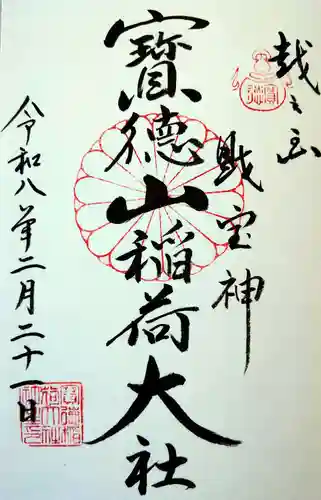 越之国
財宝神
寳徳山稲荷大社
令和八年二月二十一日